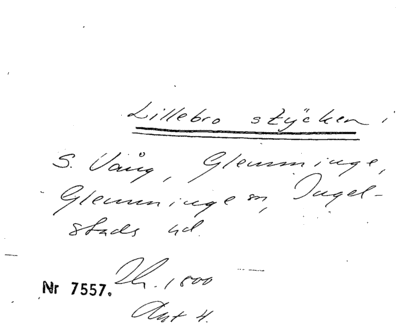 Lillebro stycken i
S. Vång, Glemminge,
Glemminge sn, Ingel-
stads hd.
Nr 7557. 1800
Ant 4.